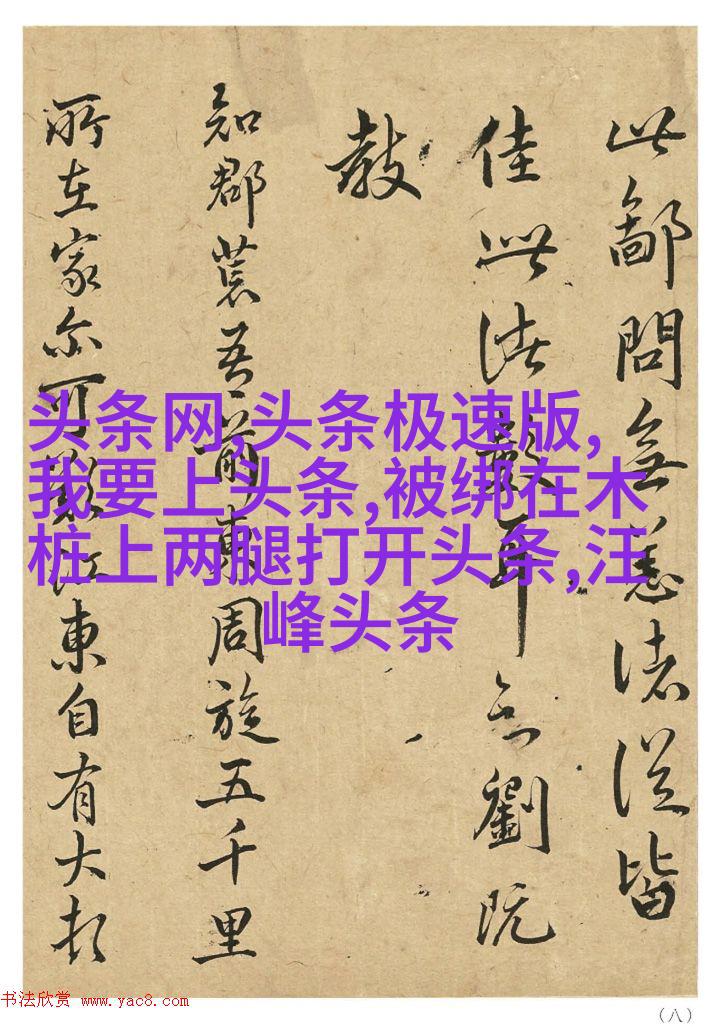 此鄙問無恙諸從皆
佳此諸數耳?劉既
教
知郡荒吾前東周旋五千里
所在家亦可歎江東自有大頓
头条网,头条极速版,
我要上头条,被绑在木
桩上两腿打开头条,汪
峰头条
书法欣赏 www.yac8.com
（八）